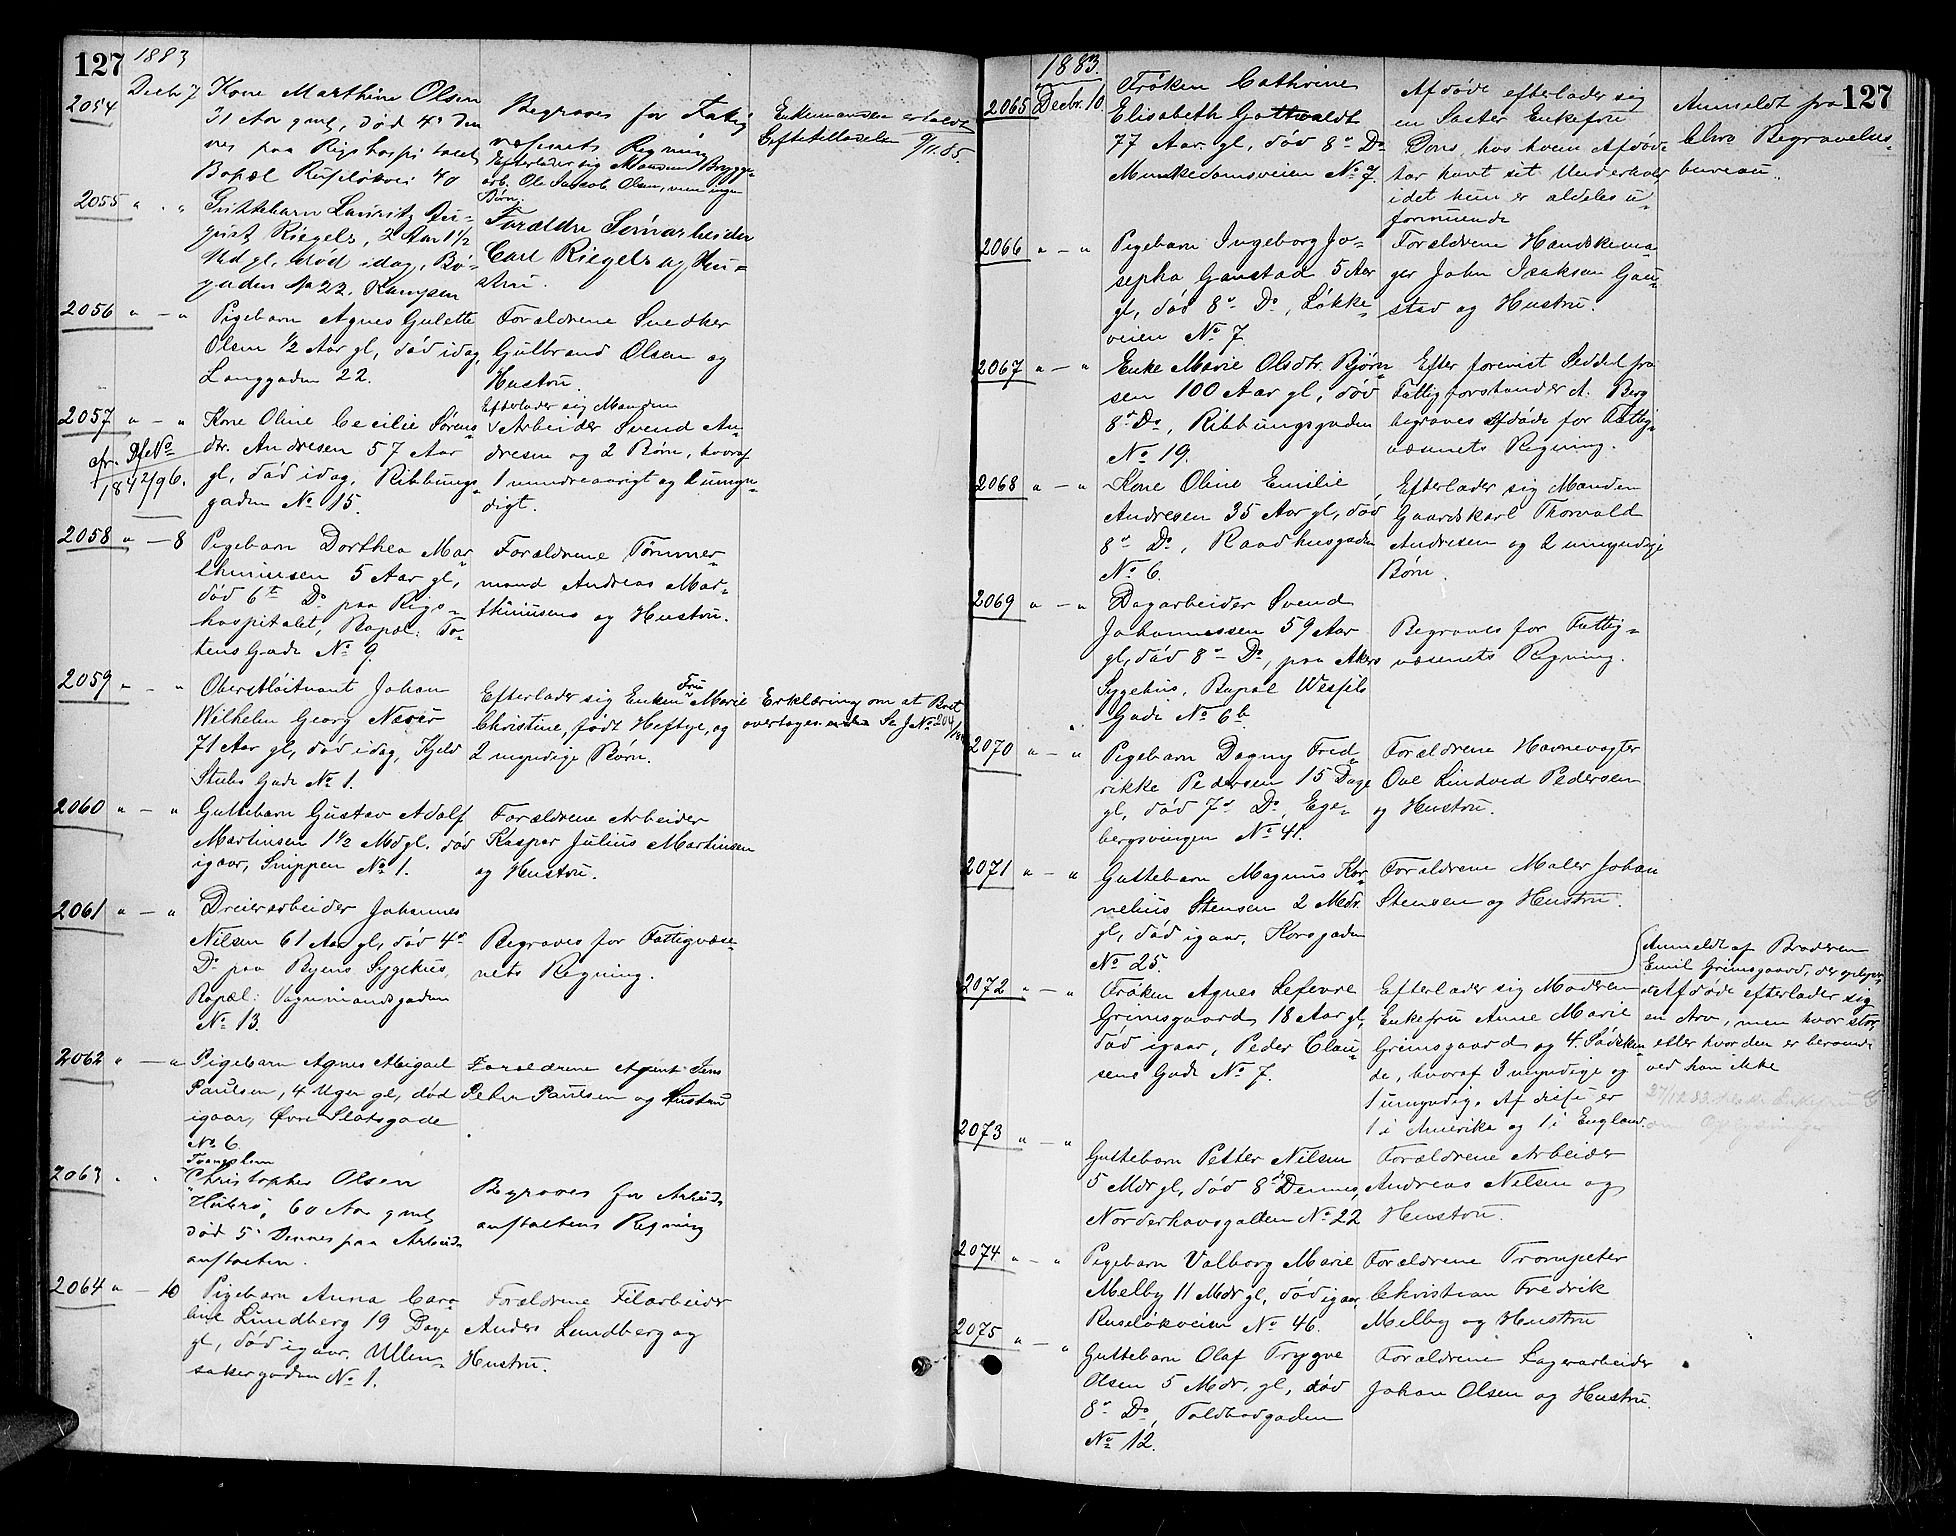 127
1883
2054
Decbr 7
Kone Marthine Olsen
31 Aar gml, død 4de den
nes paa Rigshospitalet
Bopæl Ruseløkvei 40
Begraves for Fattig
væsenets Regning
Efterlader sig Manden Brygge-
arb. Ole Jacob Olsen, men ingen
Børn.
Enkemanden erholdt
Giftettilladelse 9/11.85.
2055 " . "
Guttebarn Lauritz Au-
gust Riegels, 2 Aar 1 1/2
Md gl, død idag, Bø-
gaden No 22. Kampen
Forældre Sømarbeider
Carl Riegels og Hu-
stru.
2056 " — "
Pigebarn Agnes Gulette
Olsen 1/2 Aar gl, død idag
Langgaden 22.
Forældrene Snedker
Gulbrand Olsen og
Hustru.
2057 " — "
cfr. Df No
1842/96.
Kone Oline Cecilie Sørens-
dtr. Andresen 57 Aar
gl, død idag, Ribbungs-
gaden No 15.
Efterlader sig Manden
Arbeider Svend An-
dresen og 2 Børn, hvoraf
1 mindreaarigt og 1 umyn-
digt.
2058 " — 8
Pigebarn Dorthea Mar-
thiniusen 5 Aar gl,
død 6te Ds paa Rigs-
hospitalet, Bopæl: To-
tens Gade No 9.
Forældrene Tømmer-
mand Andreas Mar-
thiniusens og Hustru.
2059 " — "
Oberstløitnant Johan
Wilhelm Georg Næser
71 Aar gl, død idag, Kjeld
Stubs Gade No 1.
Efterlader sig Enken Fru Marie
Christine, født Heftye, og
2 myndige Børn.
Erklæring om at Boet
overtages Se J No 204/84
2060 " — "
Guttebarn Gustav Adolf
Martinsen 1 1/2 Md gl. død
igaar, Snippen No 1.
Forældrene Arbeider
Kasper Julius Martinsen
og Hustru.
2061 " — "
Dreierarbeider Johannes
Nilsen 61 Aar gl, død 4de
Ds paa Byens Sygehus,
Bopæl: Vognmandsgaden
No 13.
Begraves for Fattigvæse-
nets Regning.
2062 " — "
Pigebarn Agnes Abigael
Paulsen, 4 Uger gl, død
igaar, Øvre Slotsgade
No 6
Forældrene Agent Jens
Peter Paulsen og Hustru
2063 " . "
Tvangslem
Christopher Olsen
"Holero", 60 Aar gml,
død 5' Dennes paa Arbeids-
anstalten.
Begraves for Arbeids
anstaltens Regning
2064 " — 10
Pigebarn Anna Caro-
line Lundberg 19 Dage
gl, død igaar, Ullen-
sakergaden No 1.
Forældrene Filarbeider
Anders Lundberg og
Hustru.
127
1883.
2065 Decbr. 10
Frøken Cathrine
Elisabeth Gottwaldt
77 Aar gl, død 8de Ds
Munkedamsveien No 7.
Afdøde efterlader sig
en Søster Enkefru
Dons, hos hvem Afdøde
har havt sit Underhold
idet hun er aldeles u-
formuende
Anmeldt fra
Chra Begravelses-
bureau.
2066 " — "
Pigebarn Ingeborg Jo-
sepha Gaustad 5 Aar
gl, død 8de Ds, Løkke-
veien No 7.
Forældrene Handskema-
ger John Isaksen Gau-
stad og Hustru.
2067 " — "
Enke Marie Olsdtr. Bjørn-
sen 100 Aar gl, død
8de Ds, Ribbungsgaden
No 19.
Efter forevist Seddel fra
Fattigforstander A. Berg
begraves Afdøde for Fattig-
væsenets Regning.
2068 " — "
Kone Oline Emilie
Andresen 35 Aar gl, død
8de Ds, Raadhusgaden
No 6.
Efterlader sig Manden
Gaardskarl Thorvald
Andresen og 2 umyndige
Børn.
2069 " — "
Dagarbeider Svend
Johannessen 59 Aar
gl, død 8de Ds, paa Akers
Sygehus, Bopæl Wessels
Gade No 6b
Begraves for Fattig-
væsenets Regning.
2070 " — "
Pigebarn Dagny Fred-
rikke Pedersen 15 Dage
gl, død 7de Ds, Ege-
bergsvingen No 41.
Forældrene Havnevogter
Ove Lindved Pedersen
og Hustru.
2071 " — "
Guttebarn Magnus Kor-
nelius Stensen 2 Mdr.
gl, død igaar, Korsgaden
No 25.
Forældrene Maler Johan
Stensen og Hustru.
2072 " — "
Frøken Agnes Lefevre
Grimsgaard 18 Aar gl,
død igaar, Peder Clau-
sens Gade No 7.
Efterlader sig Moderen
Enkefru Anne Marie
Grimsgaard og 4 Søsken-
de, hvoraf 3 myndige og
1 umyndig. Af disse er
1 i Amerika og 1 i England.
Anmeldt af Broderen
Emil Grimsgaard, der oplyser,
at Afdøde efterlader sig
en Arv, men hvor stor,
eller hvor den er beroende
ved han ikke
27/12 83
2073 " — "
Guttebarn Petter Nilsen
5 Mdr gl, død 8de Dennes,
Norderhovsgaden No 22
Forældrene Arbeider
Andreas Nilsen og
Hustru.
2074 " — "
Pigebarn Valborg Marie
Melby 11 Mdr gl, død igaar,
Ruseløkveien No 46.
Forældrene Trompeter
Christian Fredrik
Melby og Hustru
2075 " — "
Guttebarn Olaf Trygve
Olsen 5 Mdr. gl, død
8de Ds, Toldbodgaden
No 12.
Forældrene Lagerarbeider
Johan Olsen og Hustru.